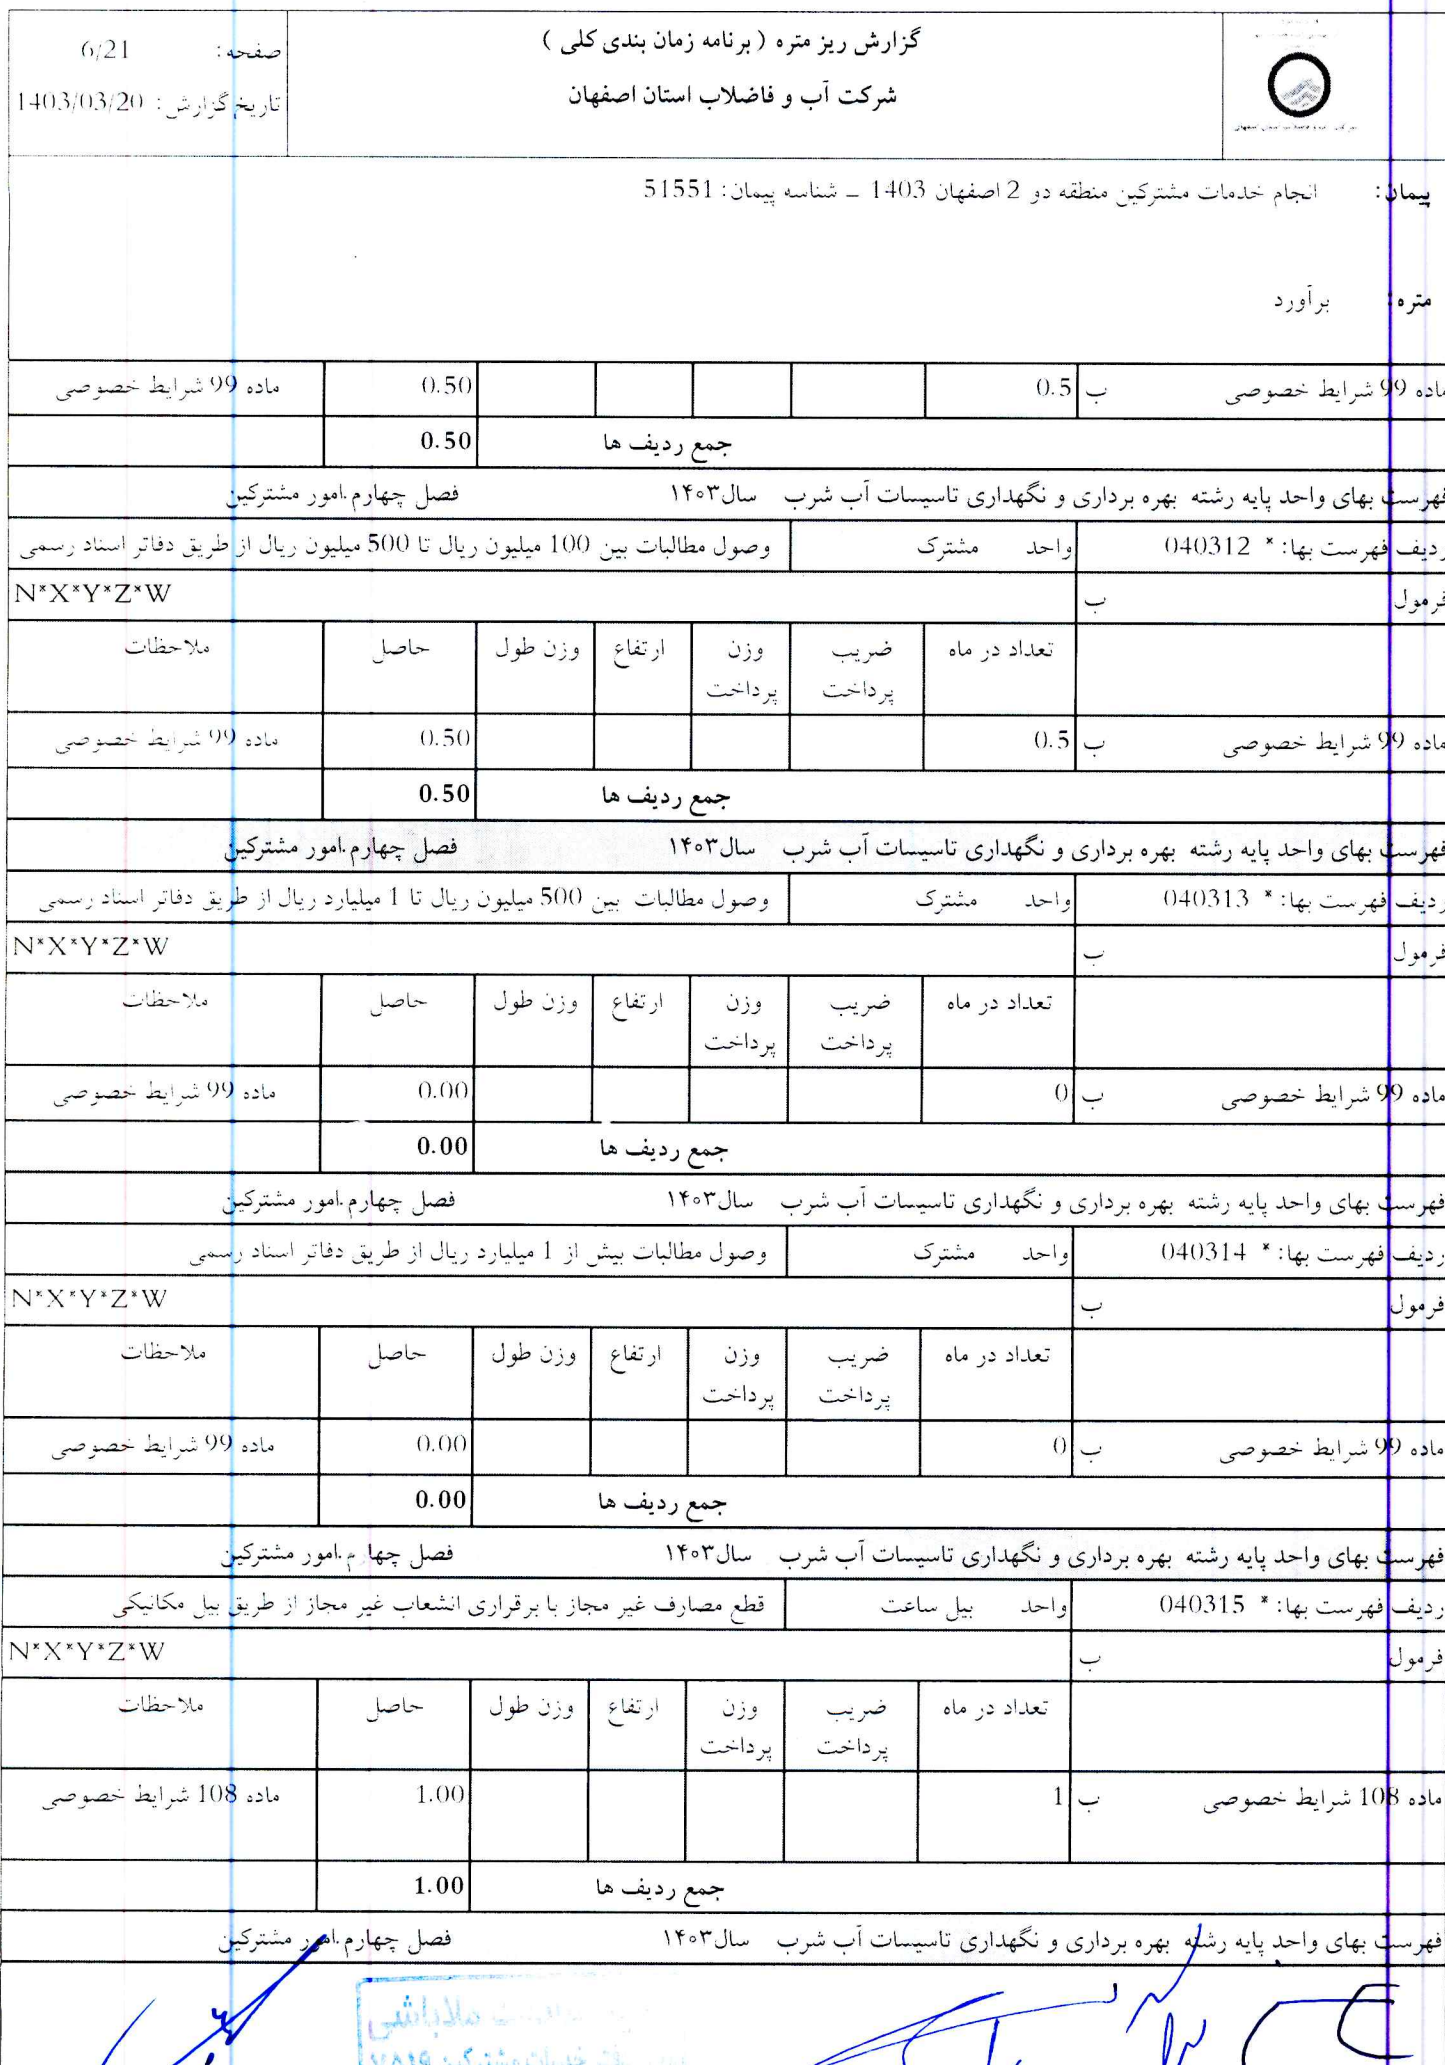 گزارش ریز متره ( برنامه زمان بندی کلی )
شرکت آب و فاضلاب استان اصفهان
صفحه : 6/21
تاریخ گزارش : 1403/03/20
پیمان: انجام خدمات مشترکین منطقه دو 2 اصفهان 1403 ـ شناسه پیمان: 51551
متره: برآورد
ماده 99 شرایط خصوصی ب 0.5 0.50 ماده 99 شرایط خصوصی
جمع ردیف ها 0.50
فهرست بهای واحد پایه رشته بهره برداری و نگهداری تاسیسات آب شرب سال۱۴۰۳ فصل چهارم.امور مشترکین
ردیف فهرست بها: * 040312 واحد مشترک وصول مطالبات بین 100 میلیون ریال تا 500 میلیون ریال از طریق دفاتر اسناد رسمی
فرمول ب N*X*Y*Z*W
تعداد در ماه ضریب پرداخت وزن پرداخت ارتفاع وزن طول حاصل ملاحظات
ماده 99 شرایط خصوصی ب 0.5 0.50 ماده 99 شرایط خصوصی
جمع ردیف ها 0.50
فهرست بهای واحد پایه رشته بهره برداری و نگهداری تاسیسات آب شرب سال۱۴۰۳ فصل چهارم.امور مشترکین
ردیف فهرست بها: * 040313 واحد مشترک وصول مطالبات بین 500 میلیون ریال تا 1 میلیارد ریال از طریق دفاتر اسناد رسمی
فرمول ب N*X*Y*Z*W
تعداد در ماه ضریب پرداخت وزن پرداخت ارتفاع وزن طول حاصل ملاحظات
ماده 99 شرایط خصوصی ب 0 0.00 ماده 99 شرایط خصوصی
جمع ردیف ها 0.00
فهرست بهای واحد پایه رشته بهره برداری و نگهداری تاسیسات آب شرب سال۱۴۰۳ فصل چهارم.امور مشترکین
ردیف فهرست بها: * 040314 واحد مشترک وصول مطالبات بیش از 1 میلیارد ریال از طریق دفاتر اسناد رسمی
فرمول ب N*X*Y*Z*W
تعداد در ماه ضریب پرداخت وزن پرداخت ارتفاع وزن طول حاصل ملاحظات
ماده 99 شرایط خصوصی ب 0 0.00 ماده 99 شرایط خصوصی
جمع ردیف ها 0.00
فهرست بهای واحد پایه رشته بهره برداری و نگهداری تاسیسات آب شرب سال۱۴۰۳ فصل چهارم.امور مشترکین
ردیف فهرست بها: * 040315 واحد بیل ساعت قطع مصارف غیر مجاز با برقراری انشعاب غیر مجاز از طریق بیل مکانیکی
فرمول ب N*X*Y*Z*W
تعداد در ماه ضریب پرداخت وزن پرداخت ارتفاع وزن طول حاصل ملاحظات
ماده 108 شرایط خصوصی ب 1 1.00 ماده 108 شرایط خصوصی
جمع ردیف ها 1.00
فهرست بهای واحد پایه رشته بهره برداری و نگهداری تاسیسات آب شرب سال۱۴۰۳ فصل چهارم.امور مشترکین
ملاباشی